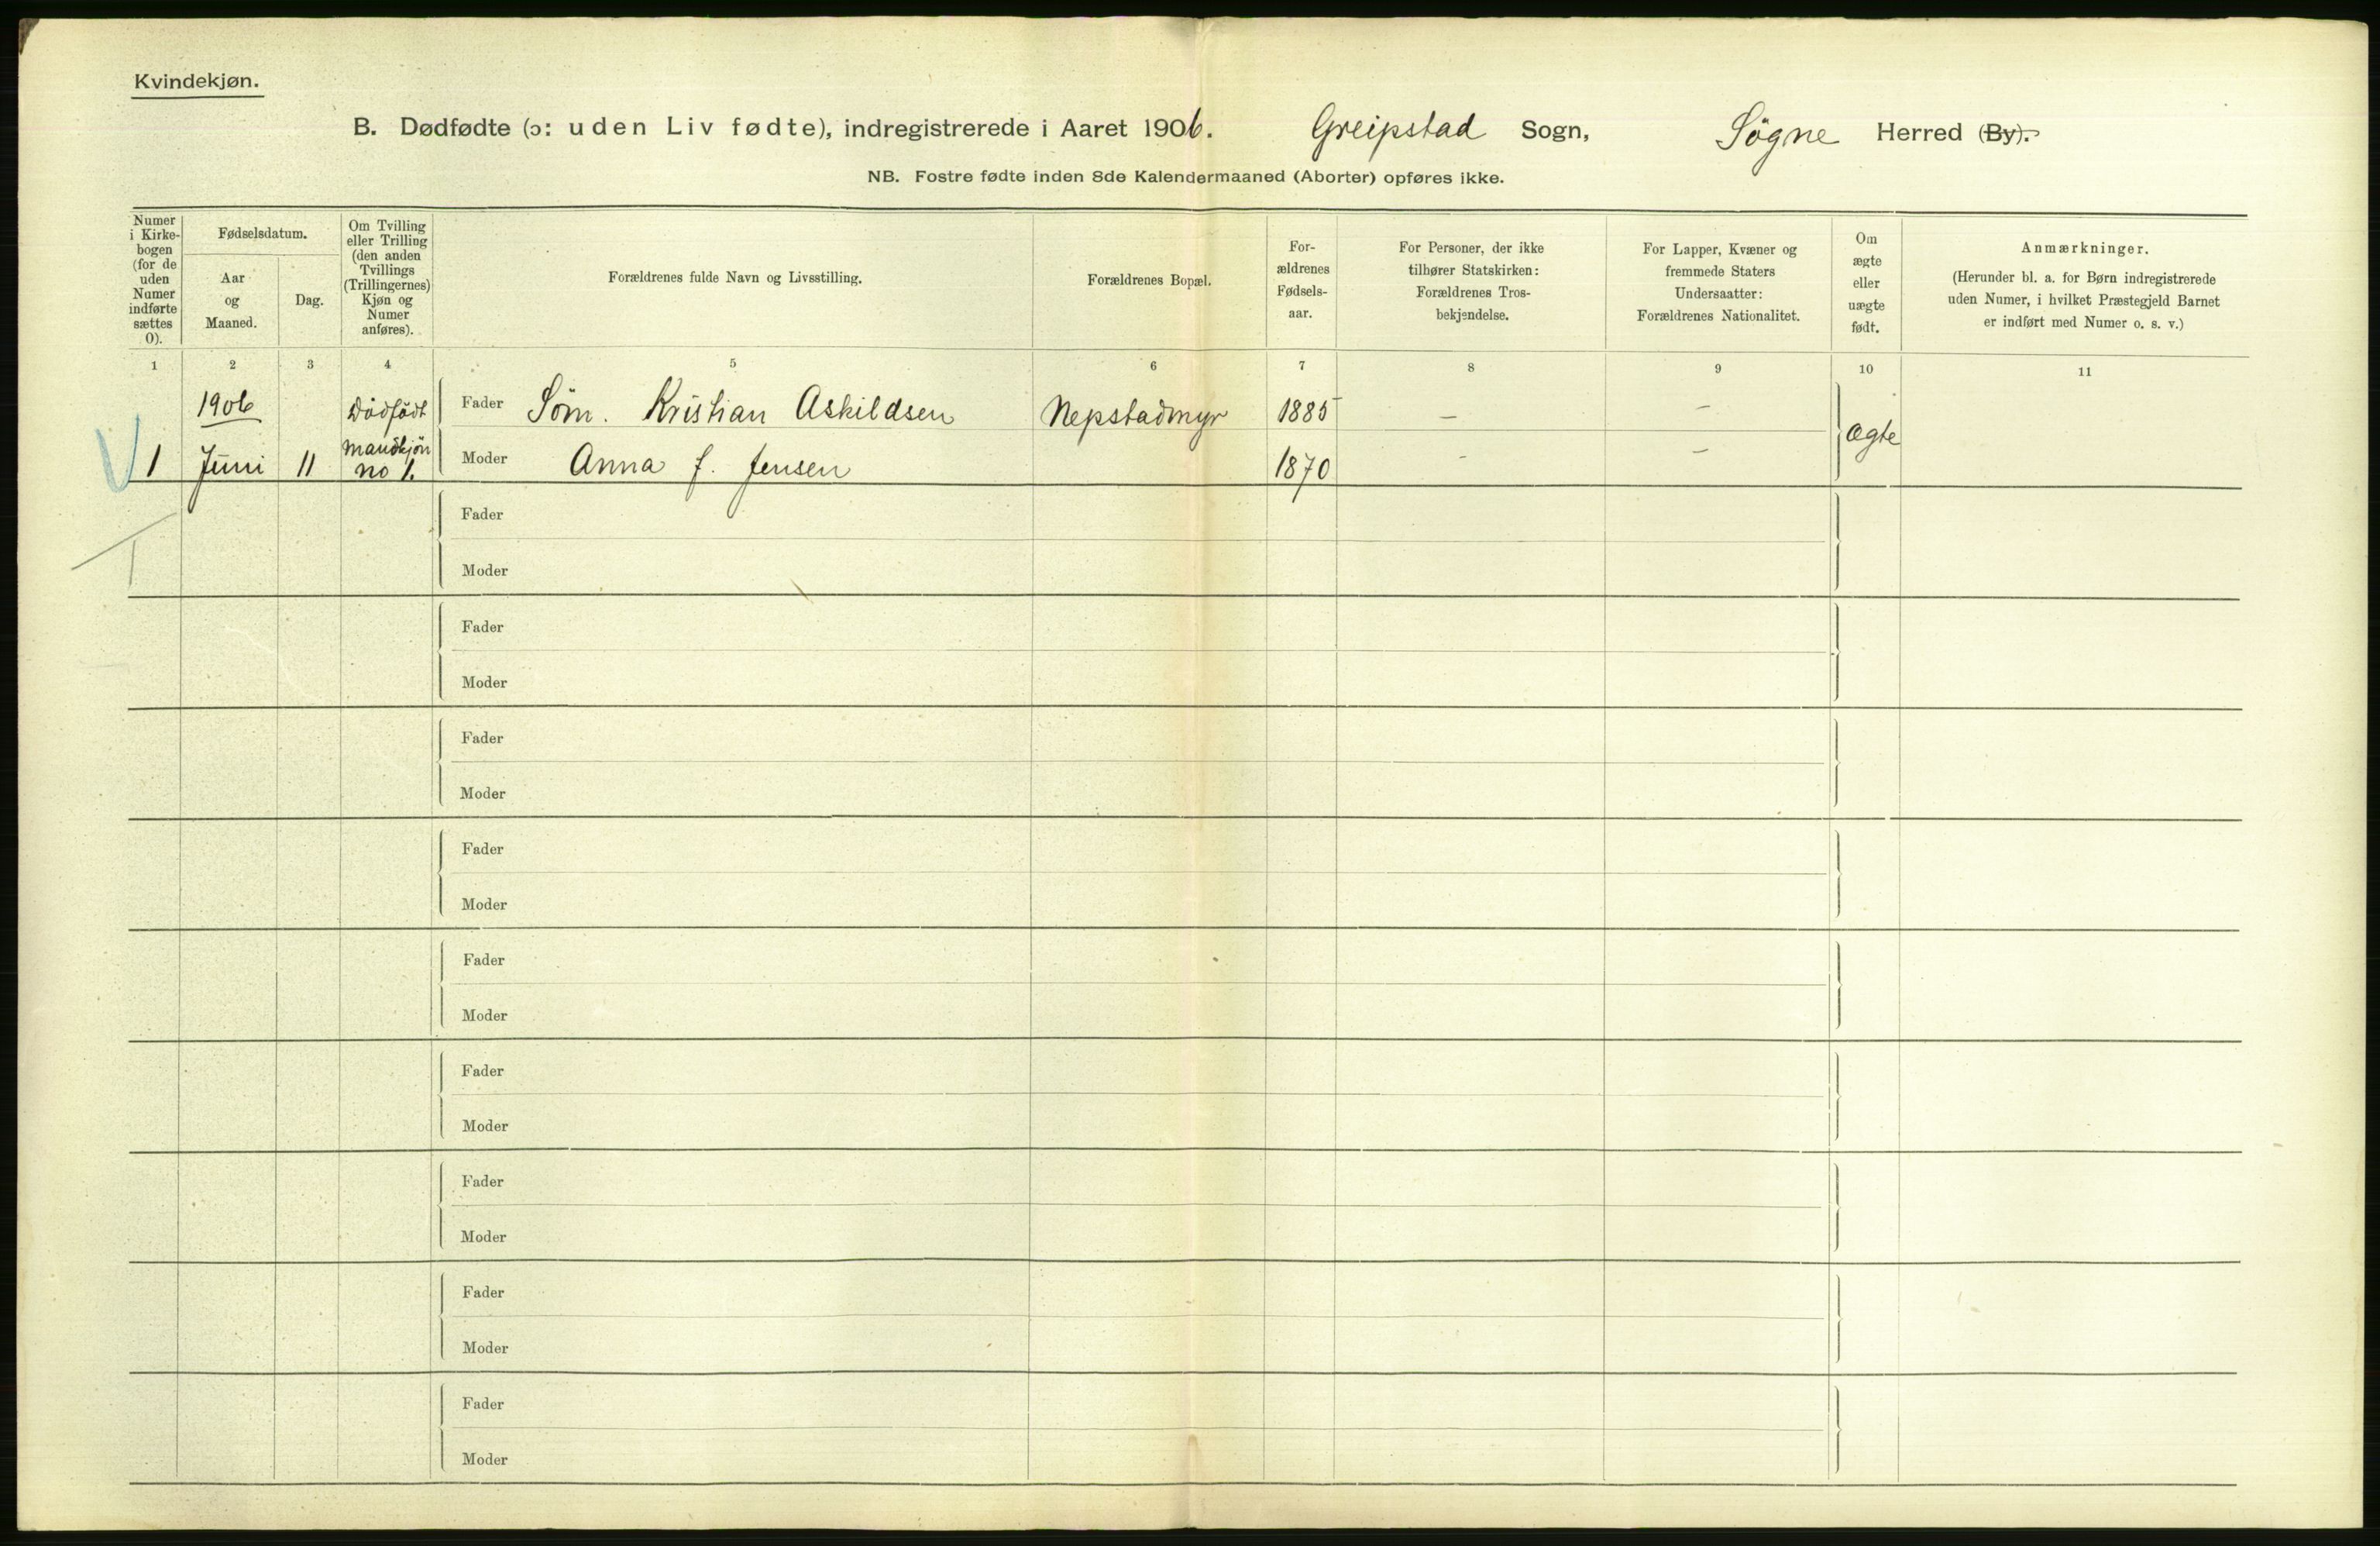 Kvindekjøn.
B. Dødfødte (ɔ: uden Liv fødte), indregistrerede i Aaret 1906. Greipstad Sogn, Søgne Herred (By).
NB. Fostre fødte inden 8de Kalendermaaned (Aborter) opføres ikke.
Numer
i Kirke-
bogen
(for de
uden
Numer
indførte
sættes
0).
Fødselsdatum.
Aar
og
Maaned.
Dag.
Om Tvilling
eller Trilling
(den anden
Tvillings
(Trillingernes)
Kjøn og
Numer
anføres).
Forældrenes fulde Navn og Livsstilling.
Forældrenes Bopæl.
For-
ældrenes
Fødsels-
aar.
For Personer, der ikke
tilhører Statskirken:
Forældrenes Tros-
bekjendelse.
For Lapper, Kvæner og
fremmede Staters
Undersaatter:
Forældrenes Nationalitet.
Om
ægte
eller
uægte
født.
Anmærkninger.
(Herunder bl. a. for Børn indregistrerede
uden Numer, i hvilket Præstegjeld Barnet
er indført med Numer o. s. v.)
1 2 3 4 5 6 7 8 9 10 11
1906 Dødfødt Fader Søm. Kristian Askildsen Nepstadmyr 1885 — —
Mandkjøn
1 Juni 11 no 1. Moder Anna J. Jensen 1870 — — Ægte
Fader
Moder
Fader
Moder
Fader
Moder
Fader
Moder
Fader
Moder
Fader
Moder
Fader
Moder
Fader
Moder
Fader
Moder